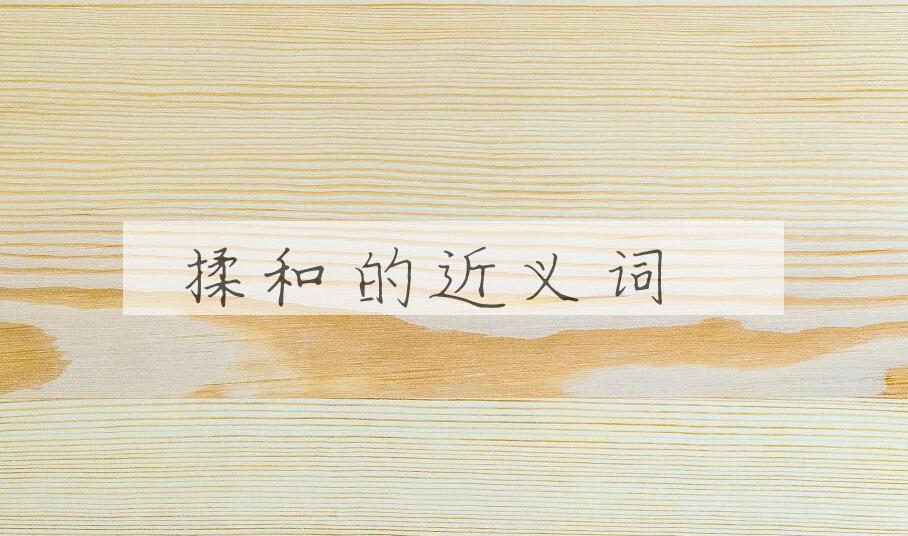 揉和的近义词